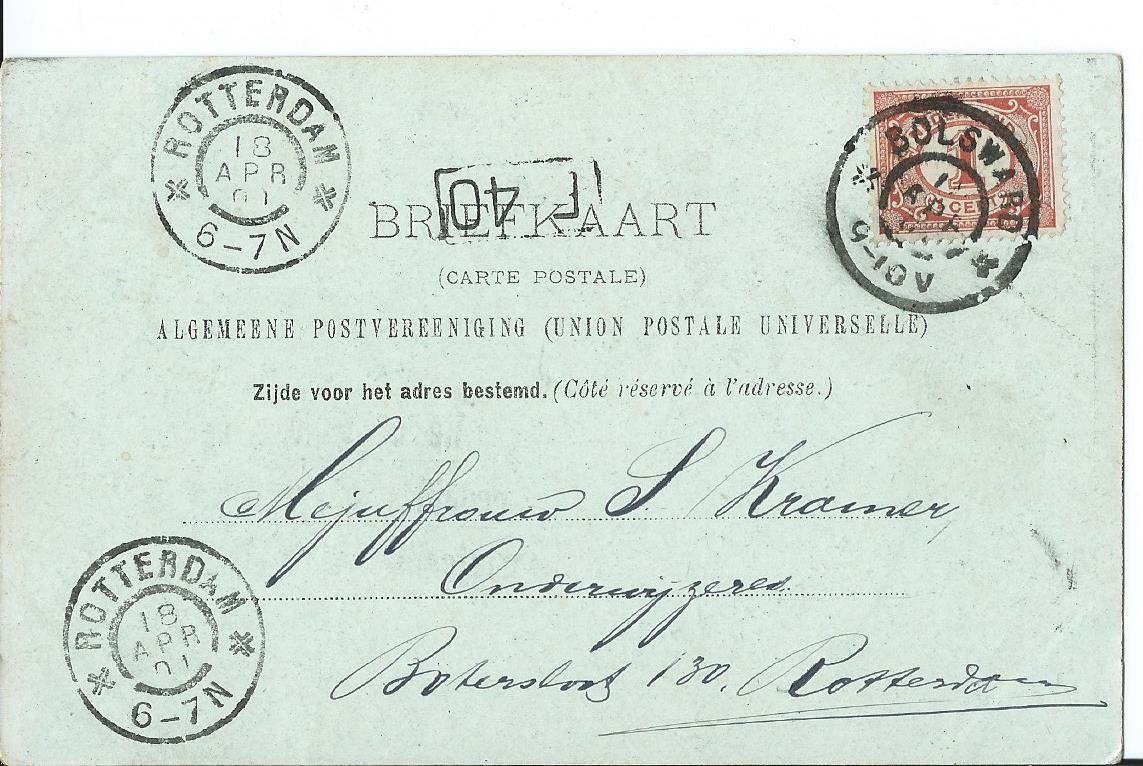 ROTTERDAM
18
APR
01
6-7N
BOLSWARD
9-10V
1
CENT
F 40
BRIEFKAART
(CARTE POSTALE)
ALGEMEENE POSTVEREENIGING (UNION POSTALE UNIVERSELLE)
Zijde voor het adres bestemd. (Côté réservé à l'adresse.)
Mejuffrouw S Kramer,
Onderwijzeres.
Botersloot 130, Rotterdam
ROTTERDAM
18
APR
01
6-7N